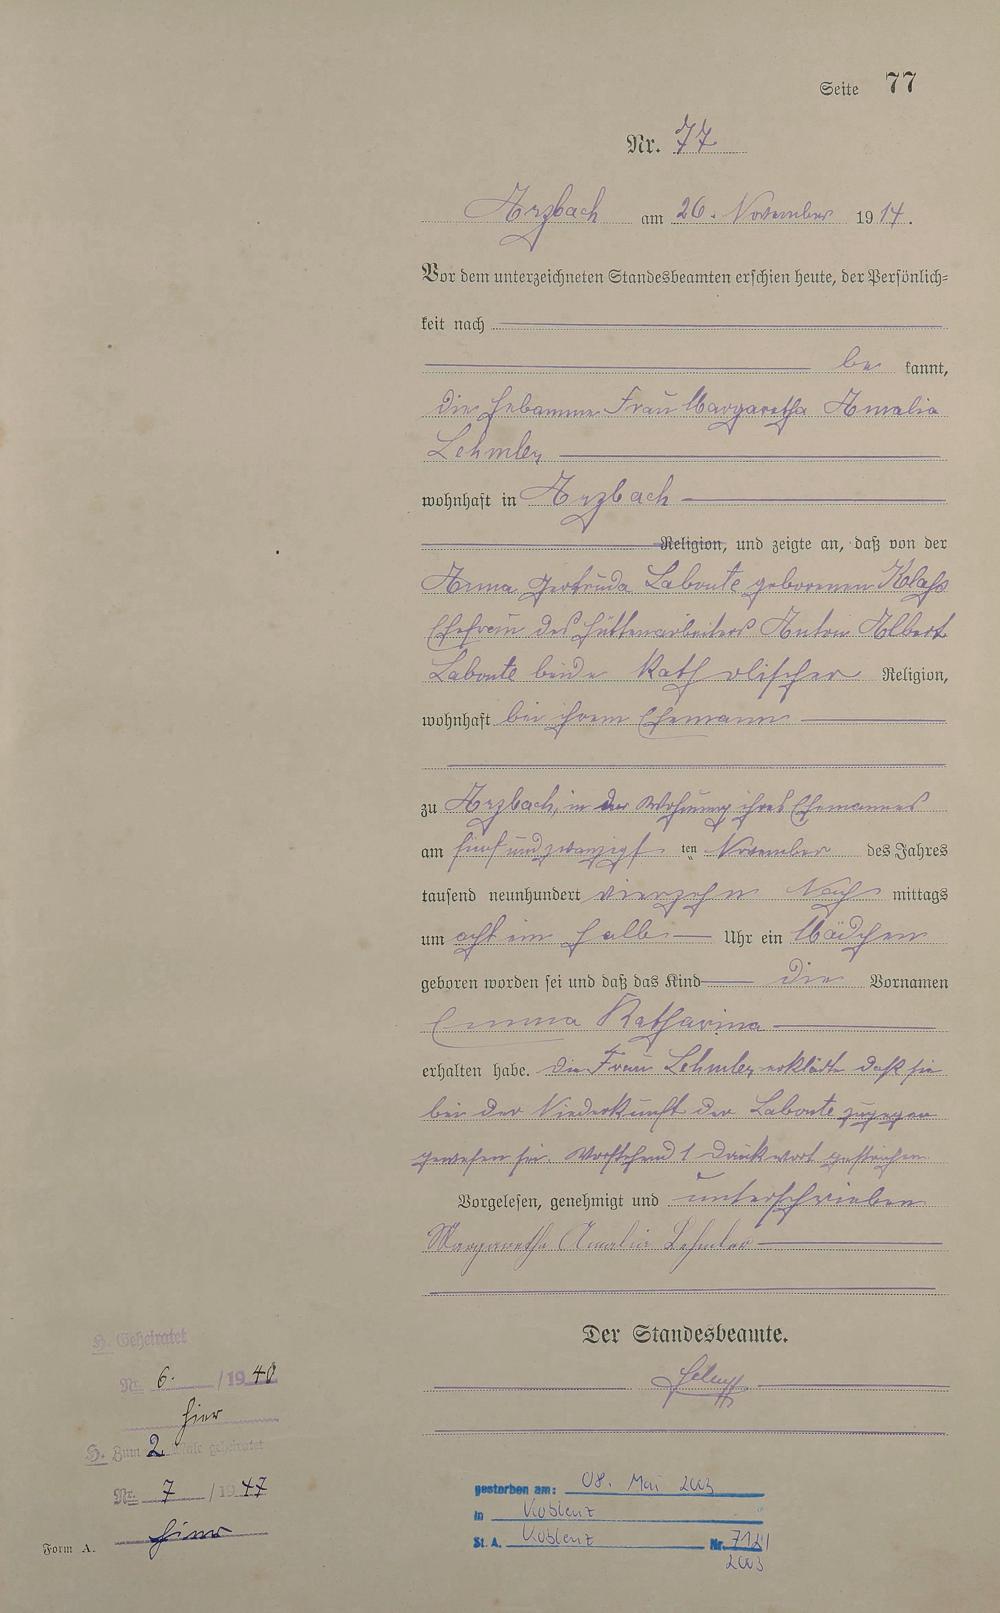 Seite 77
Nr. 77
Arzbach am 26. November 1914.
Vor dem unterzeichneten Standesbeamten erschien heute, der Persönlich=
keit nach
be kannt,
die Hebamme Frau Margaretha Amalia
Lehmler
wohnhaft in Arzbach
Religion, und zeigte an, daß von der
Anna Gertruda Labonte geborenen Klaß
Ehefrau des Hüttenarbeiters Anton Albert
Labonte beide katholischer Religion,
wohnhaft bei ihrem Ehemann
zu Arzbach, in der Wohnung ihres Ehemannes
am fünf und zwanzigs ten November des Jahres
tausend neunhundert vierzehn Nach mittags
um acht ein halb Uhr ein Mädchen
geboren worden sei und daß das Kind die Vornamen
Emma Katharina
erhalten habe. Die Frau Lehmler erklärte daß sie
bei der Niederkunft der Labonte zugegen
gewesen sei. Vorstehend 1 Druckwort gestrichen
Vorgelesen, genehmigt und unterschrieben
Margaretha Amalia Lehmler
Der Standesbeamte.
H. Geheiratet
Nr. 6. / 1940
hier
H. Zum 2. Male geheiratet
Nr. 7 / 1947
hier
Form A.
gestorben am: 08. Mai 2003
in Koblenz
St. A. Koblenz Nr.
2003